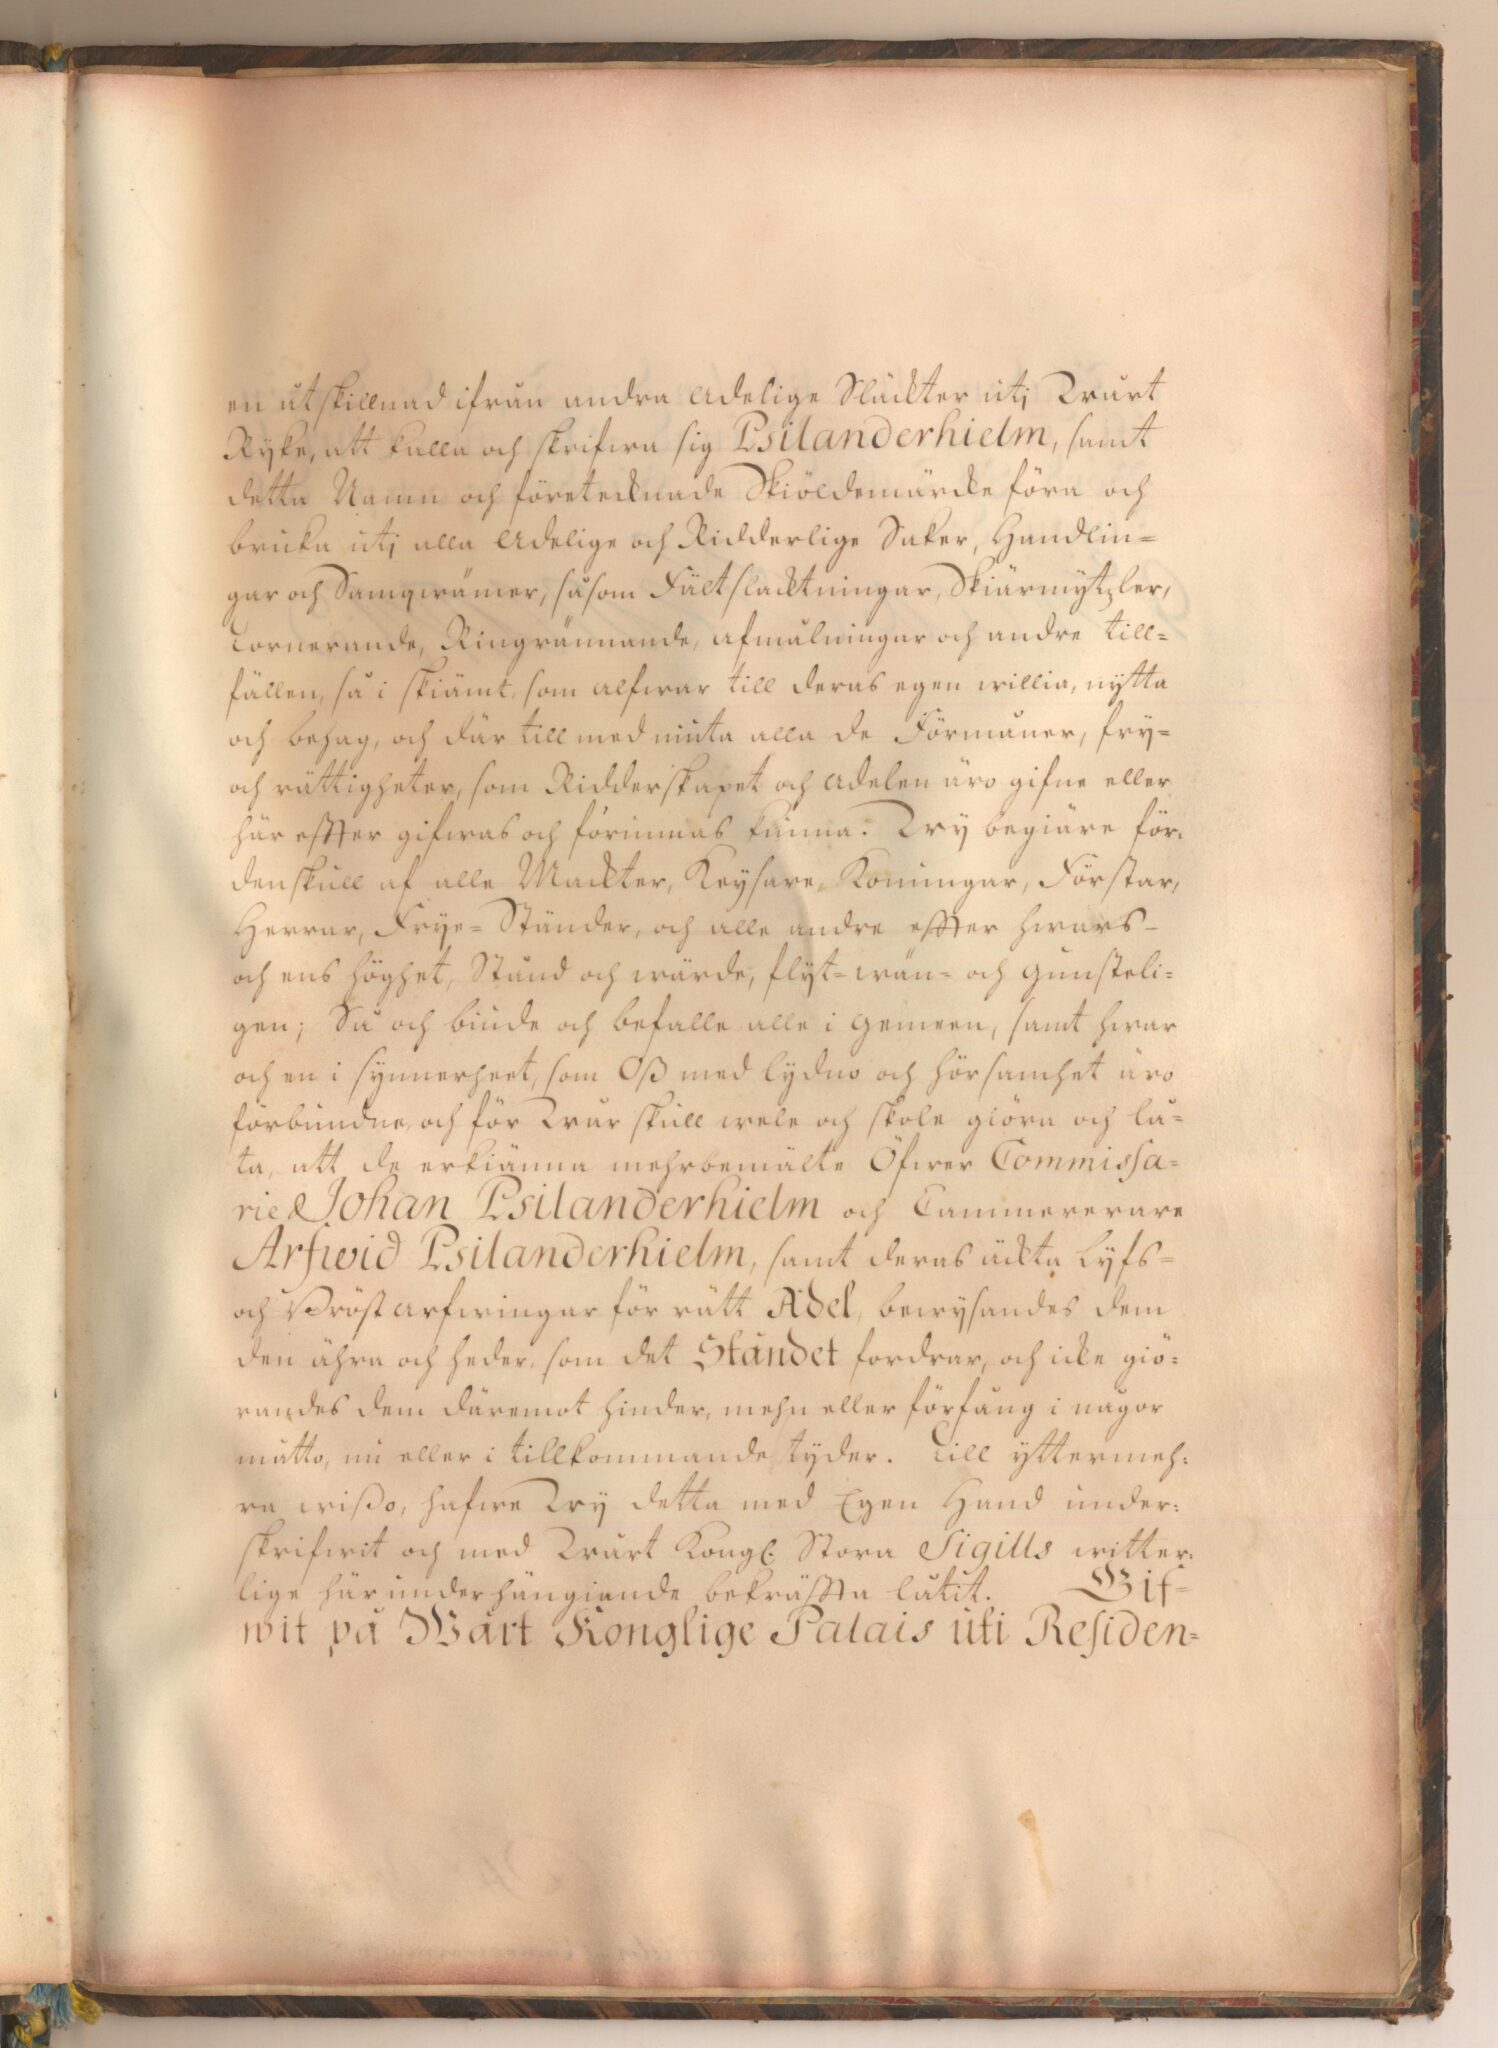 en åtskillnad ifrån andra Adelige Släckter uti Wårt
Ryke, att kalla och skrifwa sig Psilanderhielm, samt
detta Namn och företecknade Skiöldemärcke föra och
bruka uti alla Adelige och Ridderlige Saker, Handlin=
gar och Samqwämer, såsom Fältslacktningar, Skiärmytzler,
Tornerande, Ringrännande, afmålningar och andre till=
fällen, så i skiämt, som alfwar till deras egen willia, nytta
och behag, och där till med niuta alla de Förmåner, fry=
och rättigheter, som Ridderskapet och Adelen äro gifne eller
här effter gifwas och förunnas kunna. Wy begiäre för=
denskull af alle Mackter, Keysare, Koningar, Förstar,
Herrar, Frye= Ständer, och alle andre effter hwars=
och ens höghet, Stånd och wärde, flyt= wän= och gunsteli=
gen; Så och biude och befalle alle i gemeen, samt hwar
och en i synnerheet, som Oß med lydno och hörsamhet äro
förbundne och för Wår skull wele och skole giöra och lå=
ta, att de erkiänna mehrbemälte Öfwer Commissa=
rie Johan Psilanderhielm och Cammererare
Arfwid Psilanderhielm, samt deras äckta Lyfs=
och Bröst arfwingar för rätt Adel, bewysandes dem
den ähra och heder, som det Ståndet fordrar, och icke giö=
randes dem däremot hinder, mehn eller förfång i någor
måtto, nu eller i tillkommande tyder. Till yttermeh=
ra wißo, hafwe Wy detta med Egen Hand under=
skrifwit och med Wårt Kongl. Stora Sigills witter=
lige här underhängiande bekräffta låtit. Gif=
wit på Wårt Konglige Palais uti Residen=